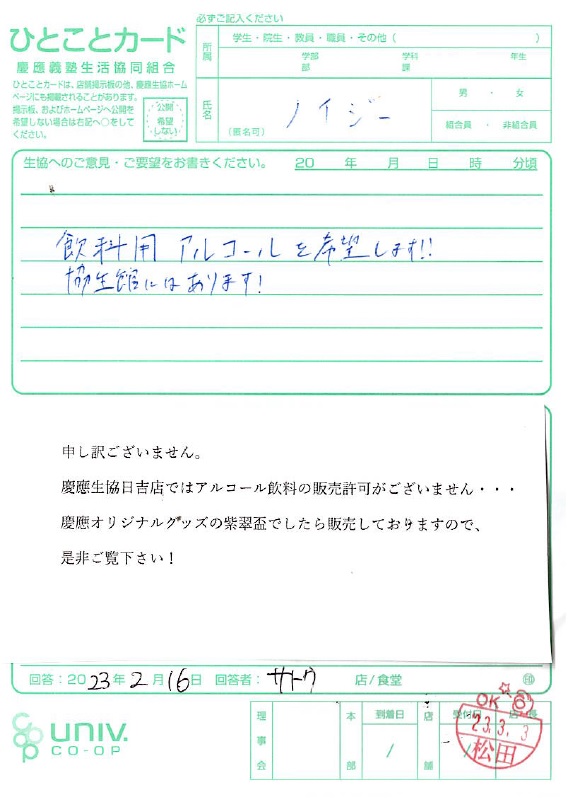 必ずご記入ください
ひとことカード
慶應義塾生活協同組合
ひとことカードは、店頭掲示板の他、慶應生協ホームページにも掲載されることがあります。
掲示板、およびホームページへ公開を
希望しない場合は右記へ○をして
ください。
公開
希望
しない
所属
学生・院生・教員・職員・その他( )
学部 学科 年生
部 課
氏名
(匿名可)
ノイジー
男 ・ 女
組合員 ・ 非組合員
生協へのご意見・ご要望をお書きください。 20 年 月 日 時 分頃
飲料用 アルコールを希望します!!
協生館にはあります!
申し訳ございません。
慶應生協日吉店ではアルコール飲料の販売許可がございません・・・
慶應オリジナルグッズの紫翠盃でしたら販売しておりますので、
是非ご覧下さい!
回答:2023年2月16日 回答者:サトウ 店/食堂 印
UNIV.
CO-OP
理事会
本部
到着日
/
店舗
受付日
/
店長
OK
23.3.3
松田